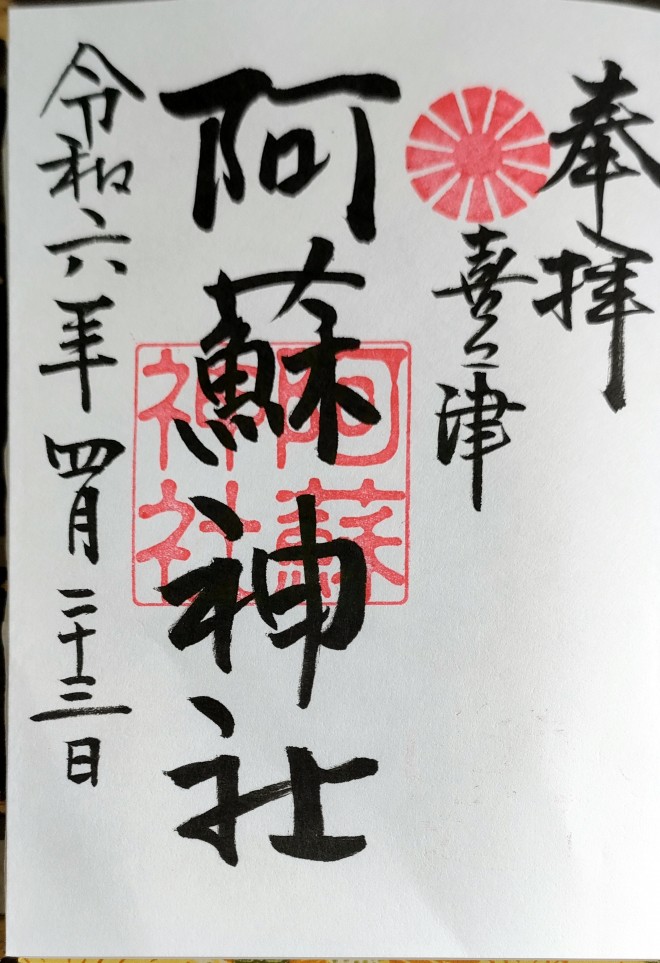 奉拝
喜々津
阿蘇神社
阿蘇神社
令和六年四月二十三日